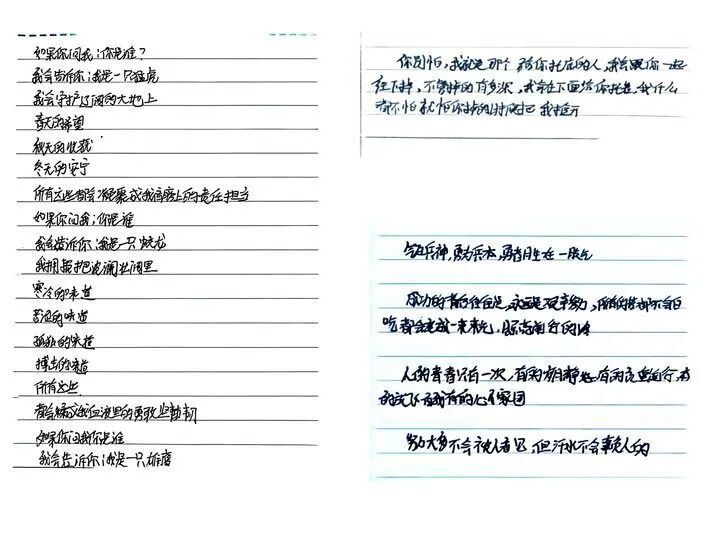 如果你问我:你是谁?
我会告诉你:我是一只猛虎
我会守护辽阔的大地上
春天的希望
秋天的收获
冬天的安宁
所有这些都会凝聚成我肩上的责任担当
如果你问我:你是谁
我会告诉你:我是一只蛟龙
我拥抱波澜壮阔里
寒冷的味道
苦涩的味道
孤独的味道
搏击的味道
所有这些
都会成我血液里的勇敢坚韧
如果你问我你是谁
我会告诉你:我是一只雄鹰
你别怕,我就是那个给你托底的人,我会跟你一起
往下掉,不管掉的有多深,我会在下面给你托底,我什么
都不怕就怕你掉的时候把我推开
气为兵神,勇为兵本,勇者胜在一股气
成功的背后往往是永远是艰辛努力,所有的努力都不会白
吃都会变成一束光,照亮前行的路
人的青春只有一次,有的岁月静好有的负重前行,
努力大多不会被人看见,但汗水不会辜负人的